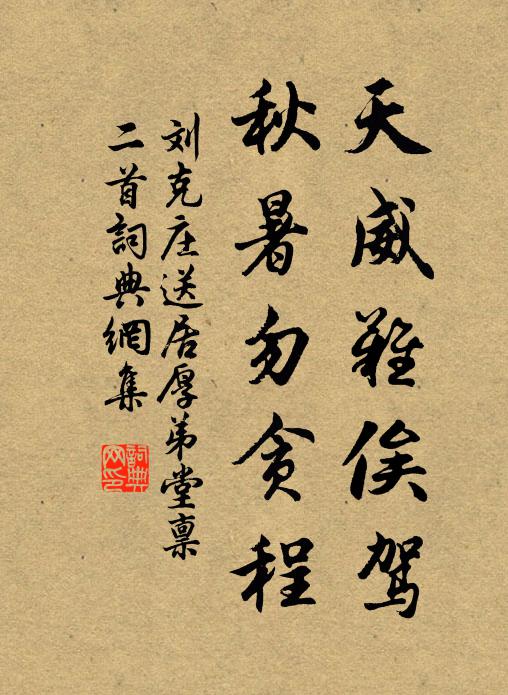 天威难俟驾
秋暑勿贪程
刘克庄送居厚弟堂禀
二首词典网集
词典网印